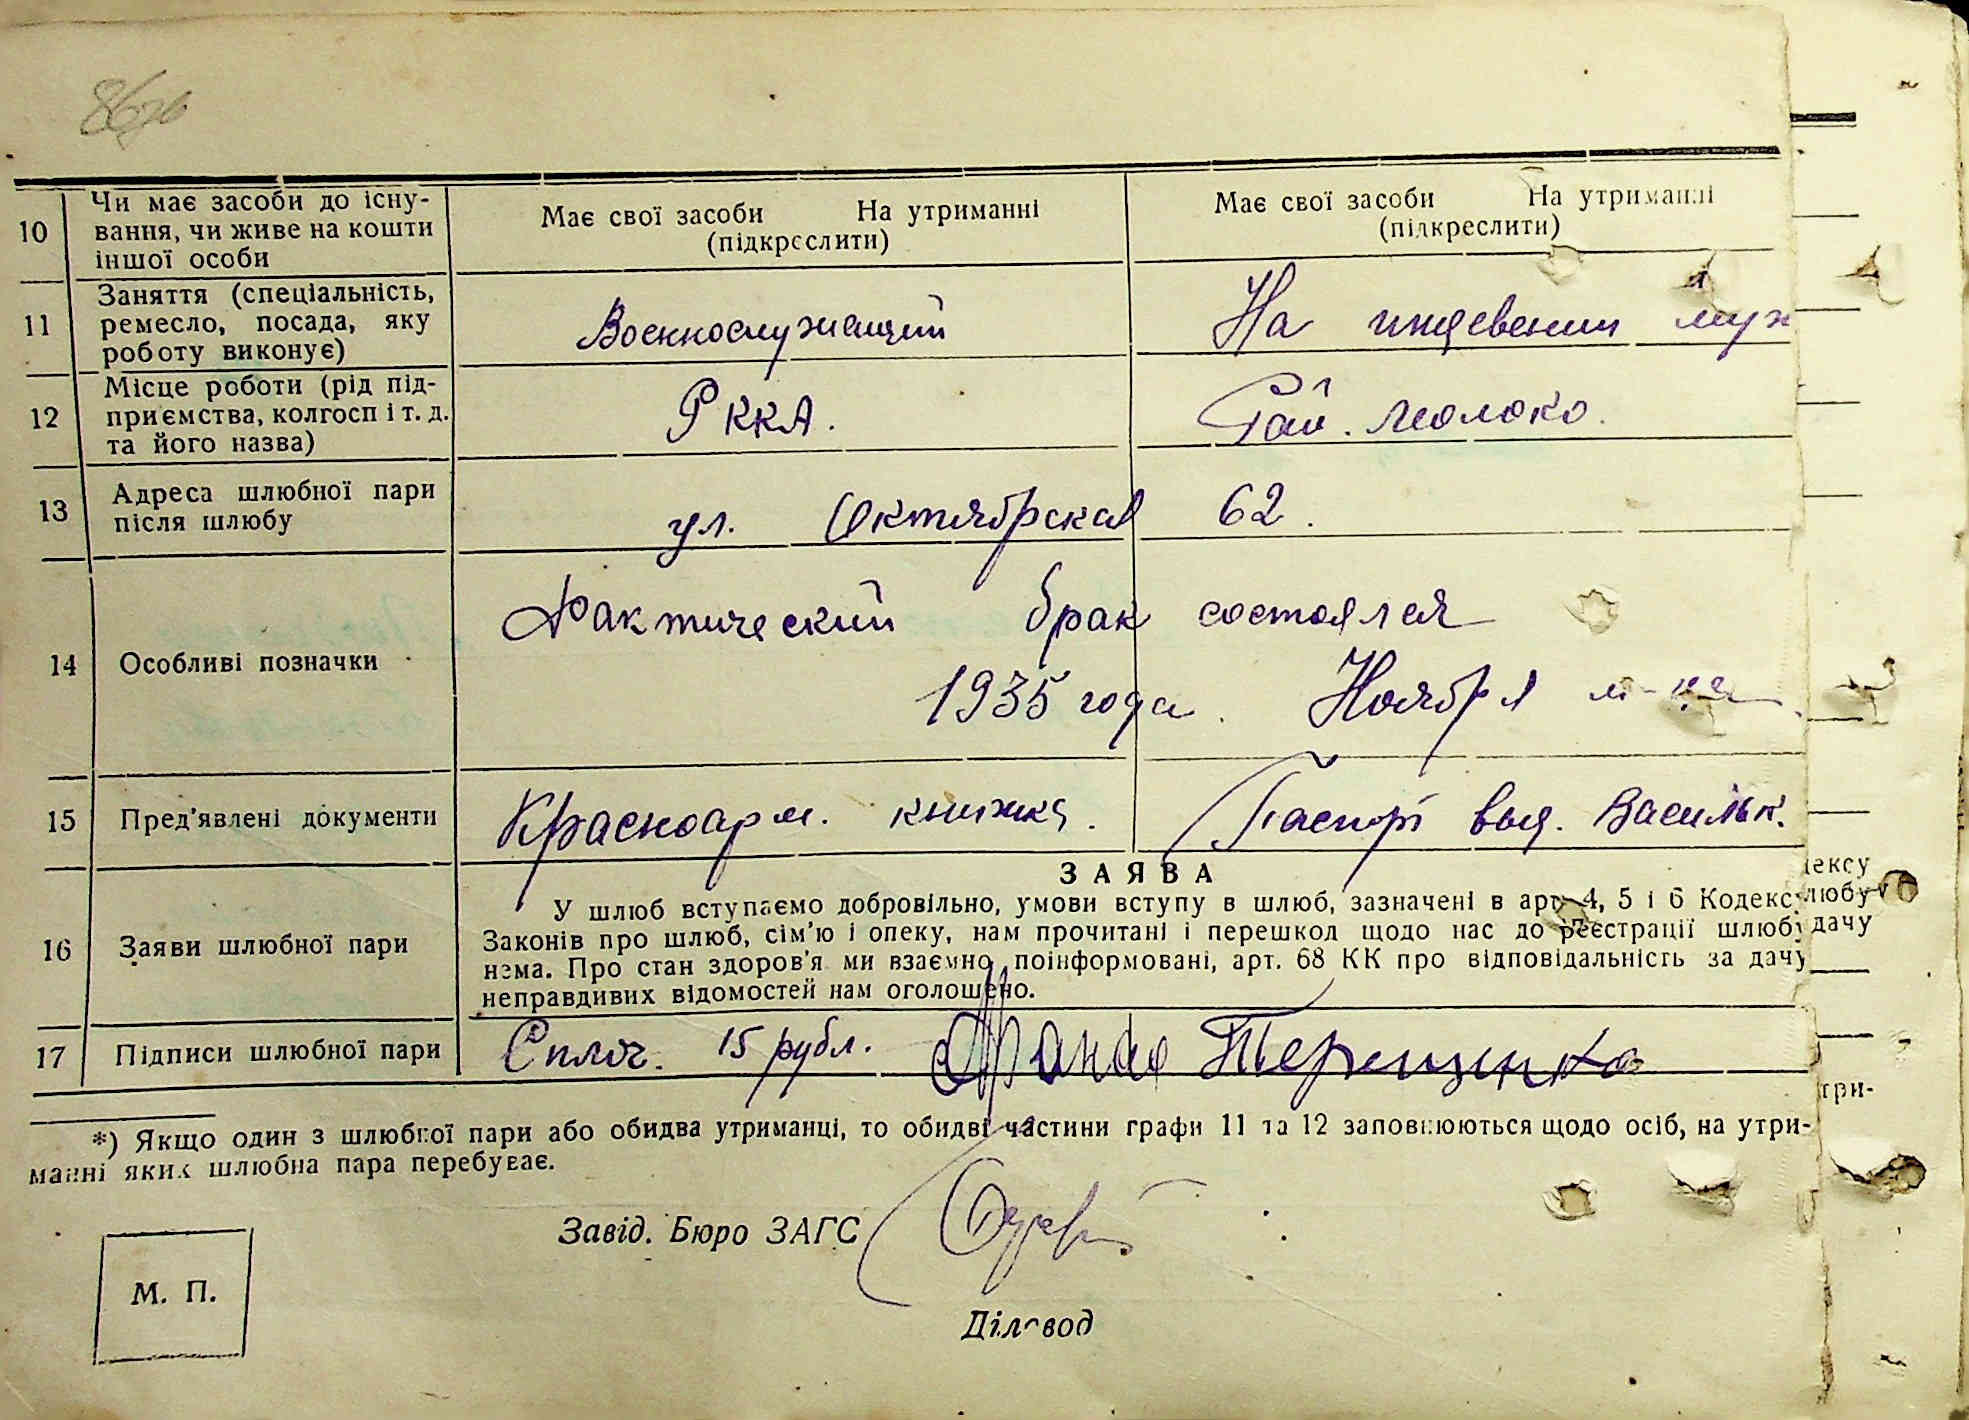 86
10 Чи має засоби до існу-
вання, чи живе на кошти
іншої особи
Має свої засоби На утриманні
(підкреслити)
Має свої засоби На утриманні
(підкреслити)
11 Заняття (спеціальність,
ремесло, посада, яку
роботу виконує)
Военнослужащий
На иждевении муж
12 Місце роботи (рід під-
приємства, колгосп і т. д.
та його назва)
РККА.
Рай. Молоко.
13 Адреса шлюбної пари
після шлюбу
ул. Октябрская 62.
14 Особливі позначки
Фактический брак состоялся
1935 года. Ноября м-ца
15 Пред'явлені документи
Красноарм. книжка.
Паспорт выд. Васильк.
ЗАЯВА
16 Заяви шлюбної пари
У шлюб вступаємо добровільно, умови вступу в шлюб, зазначені в арт. 4, 5 і 6 Кодексу
Законів про шлюб, сім'ю і опеку, нам прочитані і перешкод щодо нас до реєстрації шлюбу
нема. Про стан здоров'я ми взаємно поінформовані, арт. 68 КК про відповідальність за дачу
неправдивих відомостей нам оголошено.
17 Підписи шлюбної пари
Сплоч. 15 рубл. Терещенко
*) Якщо один з шлюбної пари або обидва утриманці, то обидві частини графи 11 та 12 заповнюються щодо осіб, на утри-
манні яких шлюбна пара перебуває.
Завід. Бюро ЗАГС
М. П.
Діловод
дексу
любу
дачу
три-